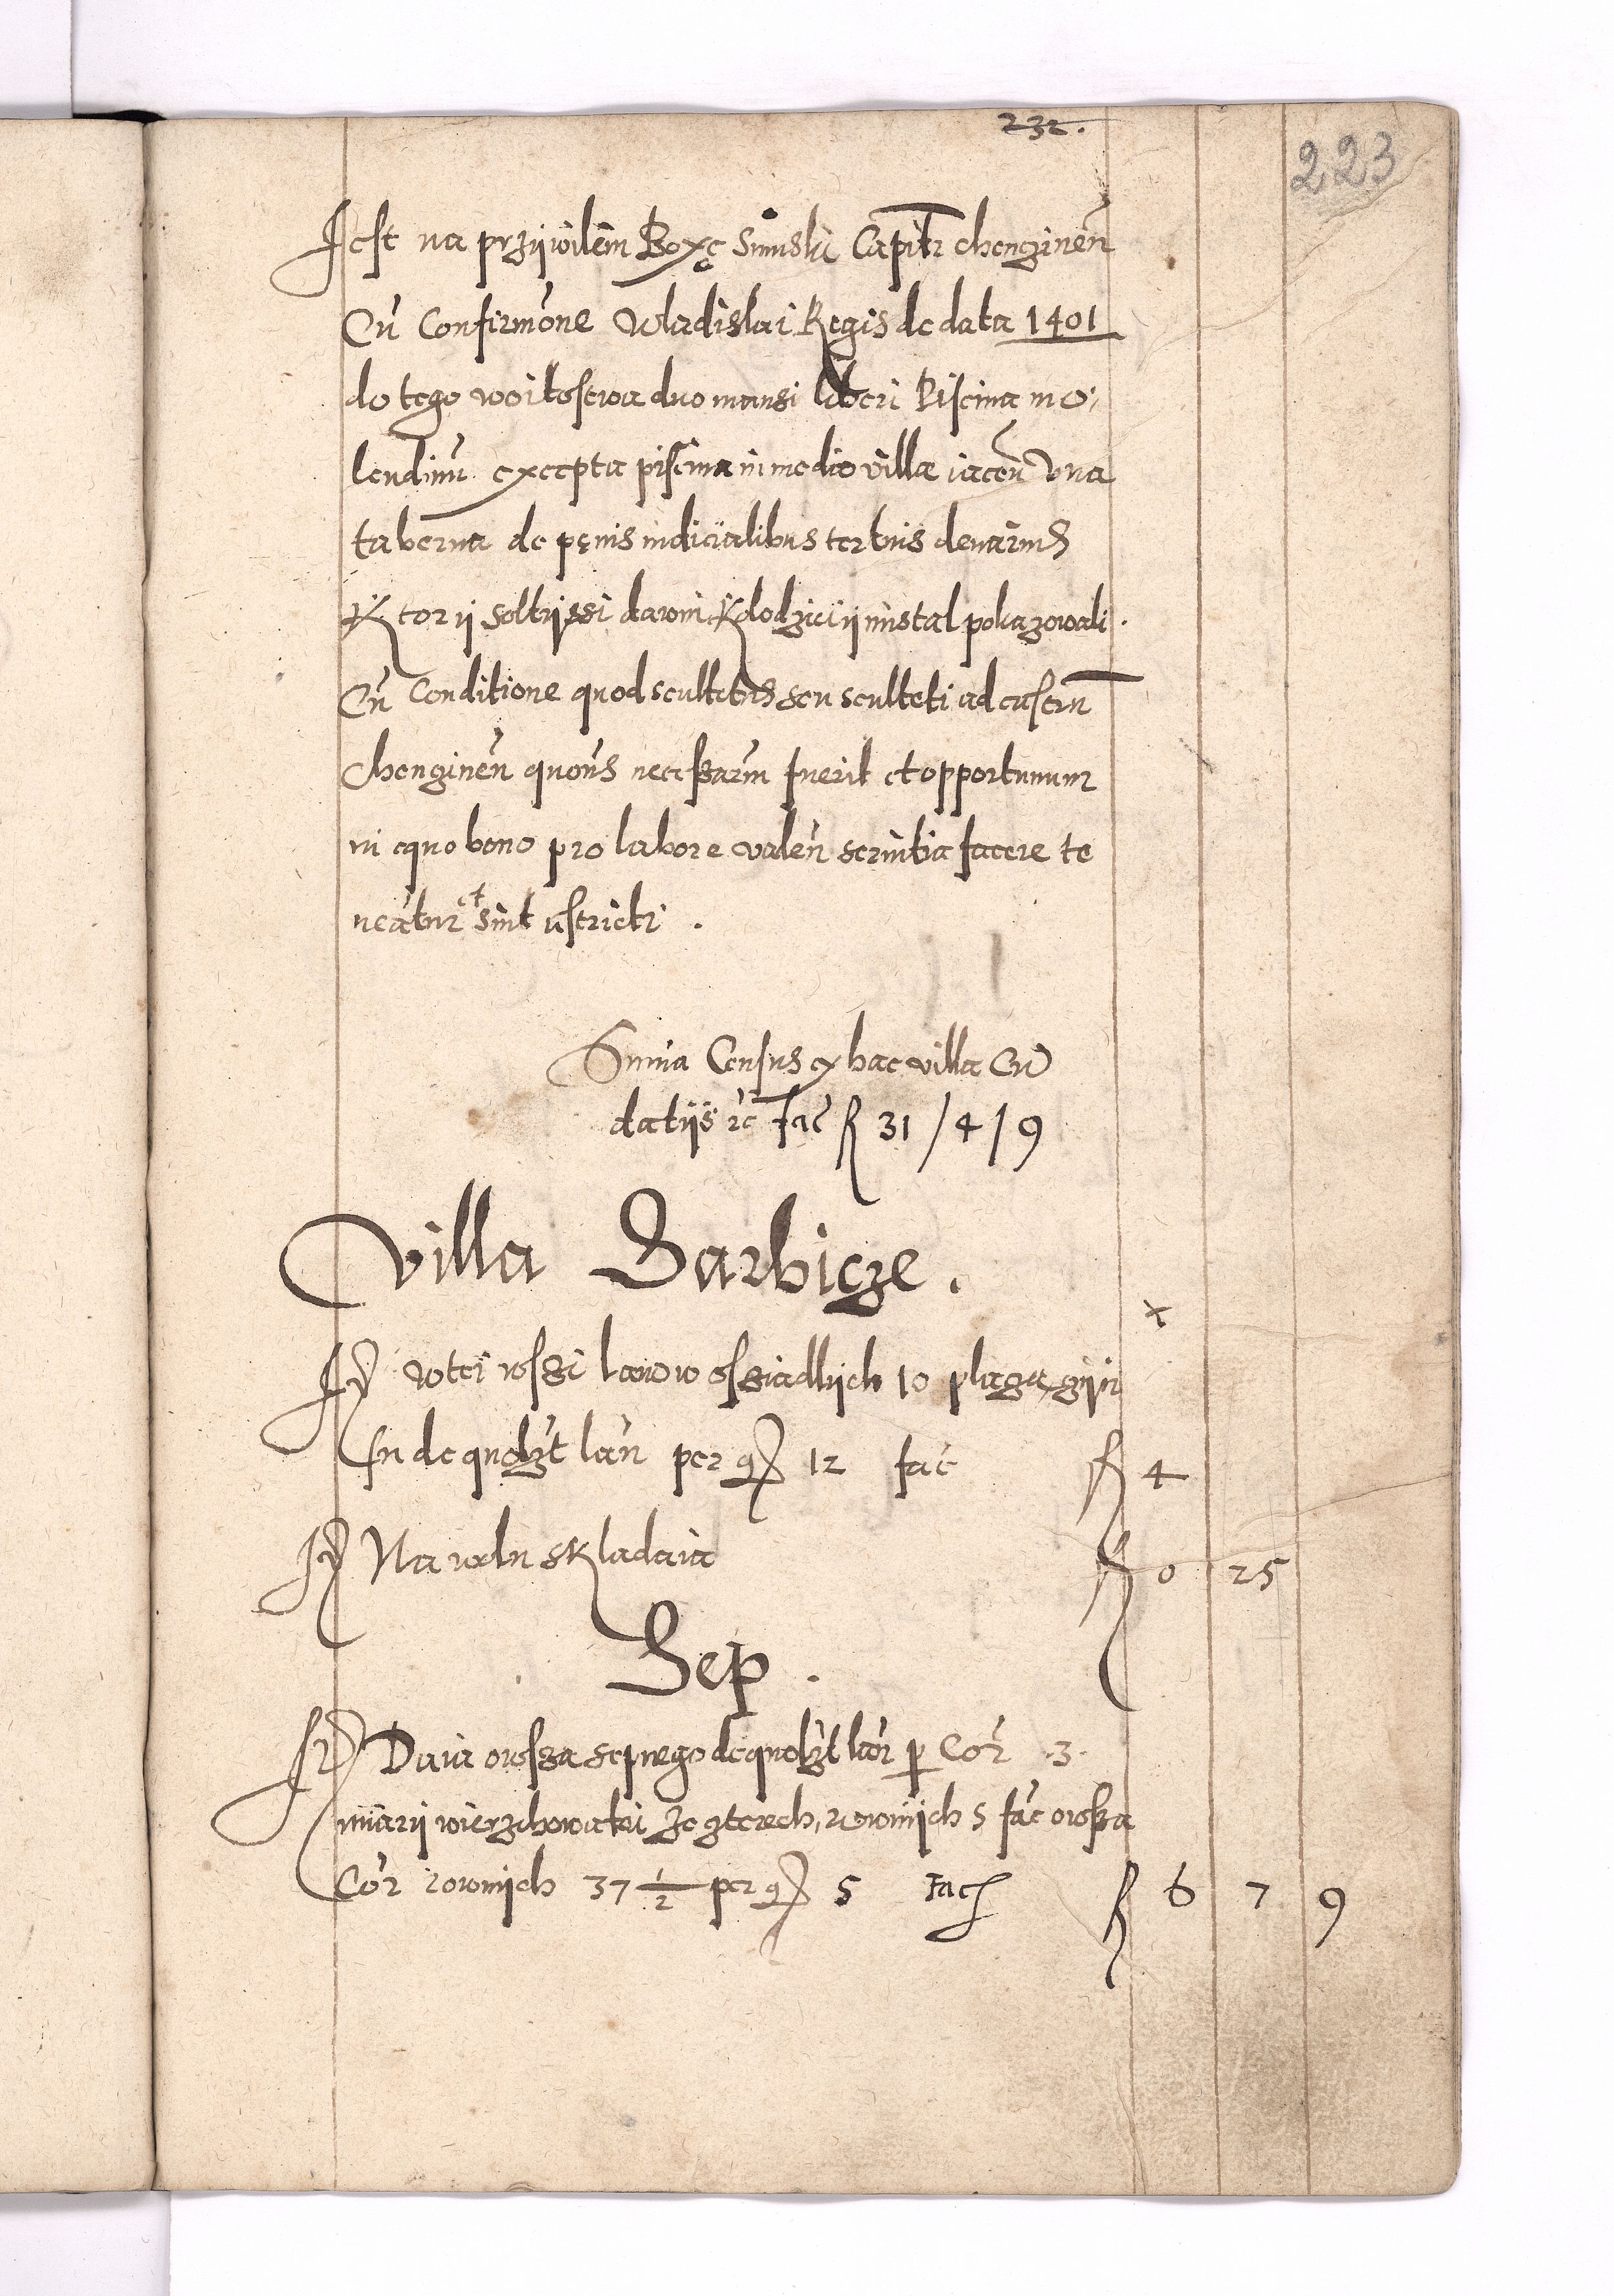 232.
223
Jest na przÿwilem Boxę Sunuski Capitr chenginen̄
Cū Confirmone Wladislai Regis de data 1401
do tego woitostwa duo mansi liberi Piscina mo,
lendinū excepta piscina in medio villæ iacen̄ Vna
taberna de pęnis iudicialibus tertius denarius
Ktorÿ soltÿssi dawni Klodzicÿ mstal pokazowali.
Cū Conditione quod scultetus seu sculteti ad castrū
Chenginen̄ quotis̄ necessariū fuerit et opportunum
in equo bono pro labore valen̄ seruitia facere te
neātur et sint astricti.
Sum̄a Census ex hac villa Cū
datÿs rc̄ fac̄ fl 31 / 4 / 9
Villa Sarbicze.
x
Jt̄ w tei wssi lanow ossiadlÿch 10 płaczą czÿn
sū de quolzt lan̄ per gs 12 fac̄ fl 4
Jt̄ Na woln skladaia fl 0 25
Sep.
Jt̄ Daia owssa sepnego de quolzt lan̄ p Cor̄ .3.
miarÿ wierzchowatei ze czterech, rownÿch 5 fac̄ owssa
Cor̄ rownÿch 37 1/2 per gs 5 fac fl 6 7 9